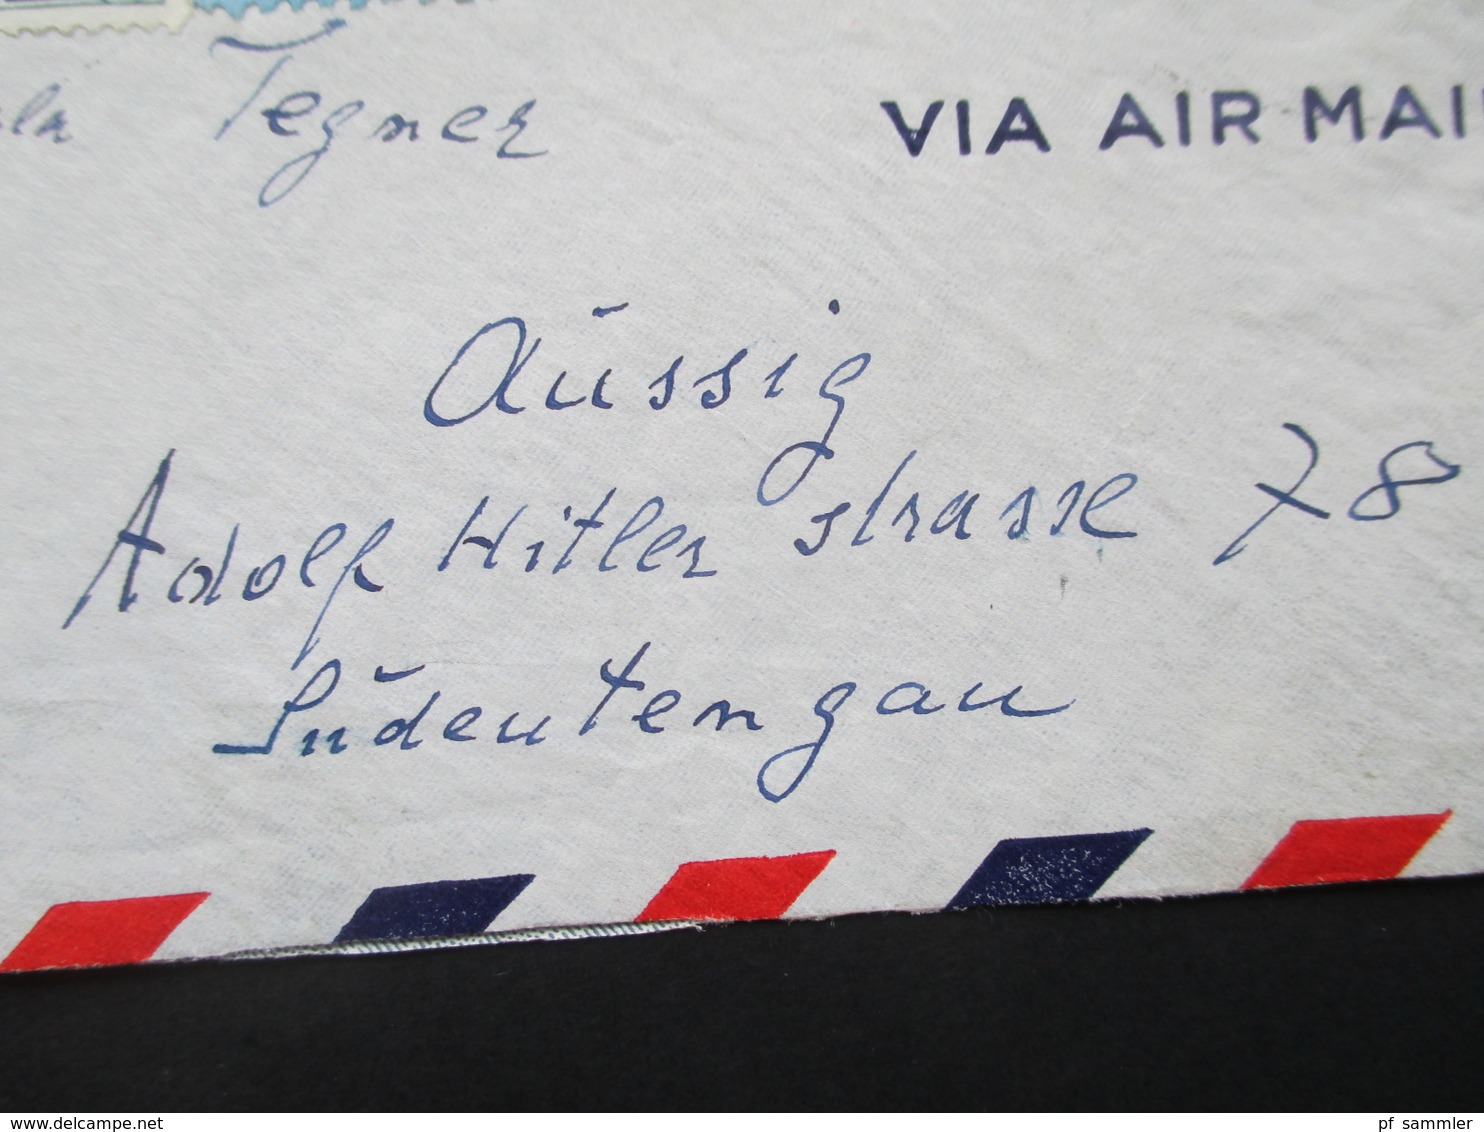 Tegner
VIA AIR MAI
Aüssig
Adolf Hitler strasse 78
Südeutengau
delcampe.net
pf_sammler